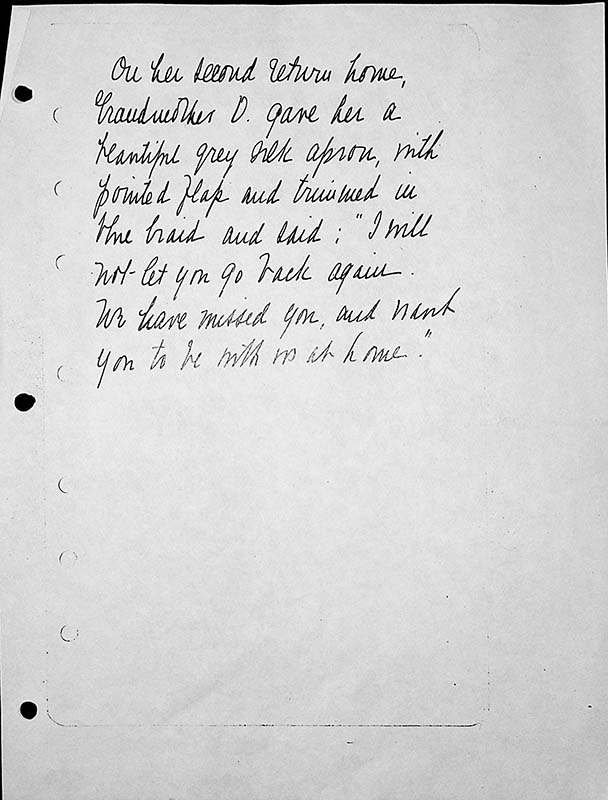 On her second return home,
Grandmother D. gave her a
beautiful grey silk apron, with
pointed flap and trimmed in
blue braid and said: "I will
not let you go back again.
We have missed you, and want
you to be with us at home."